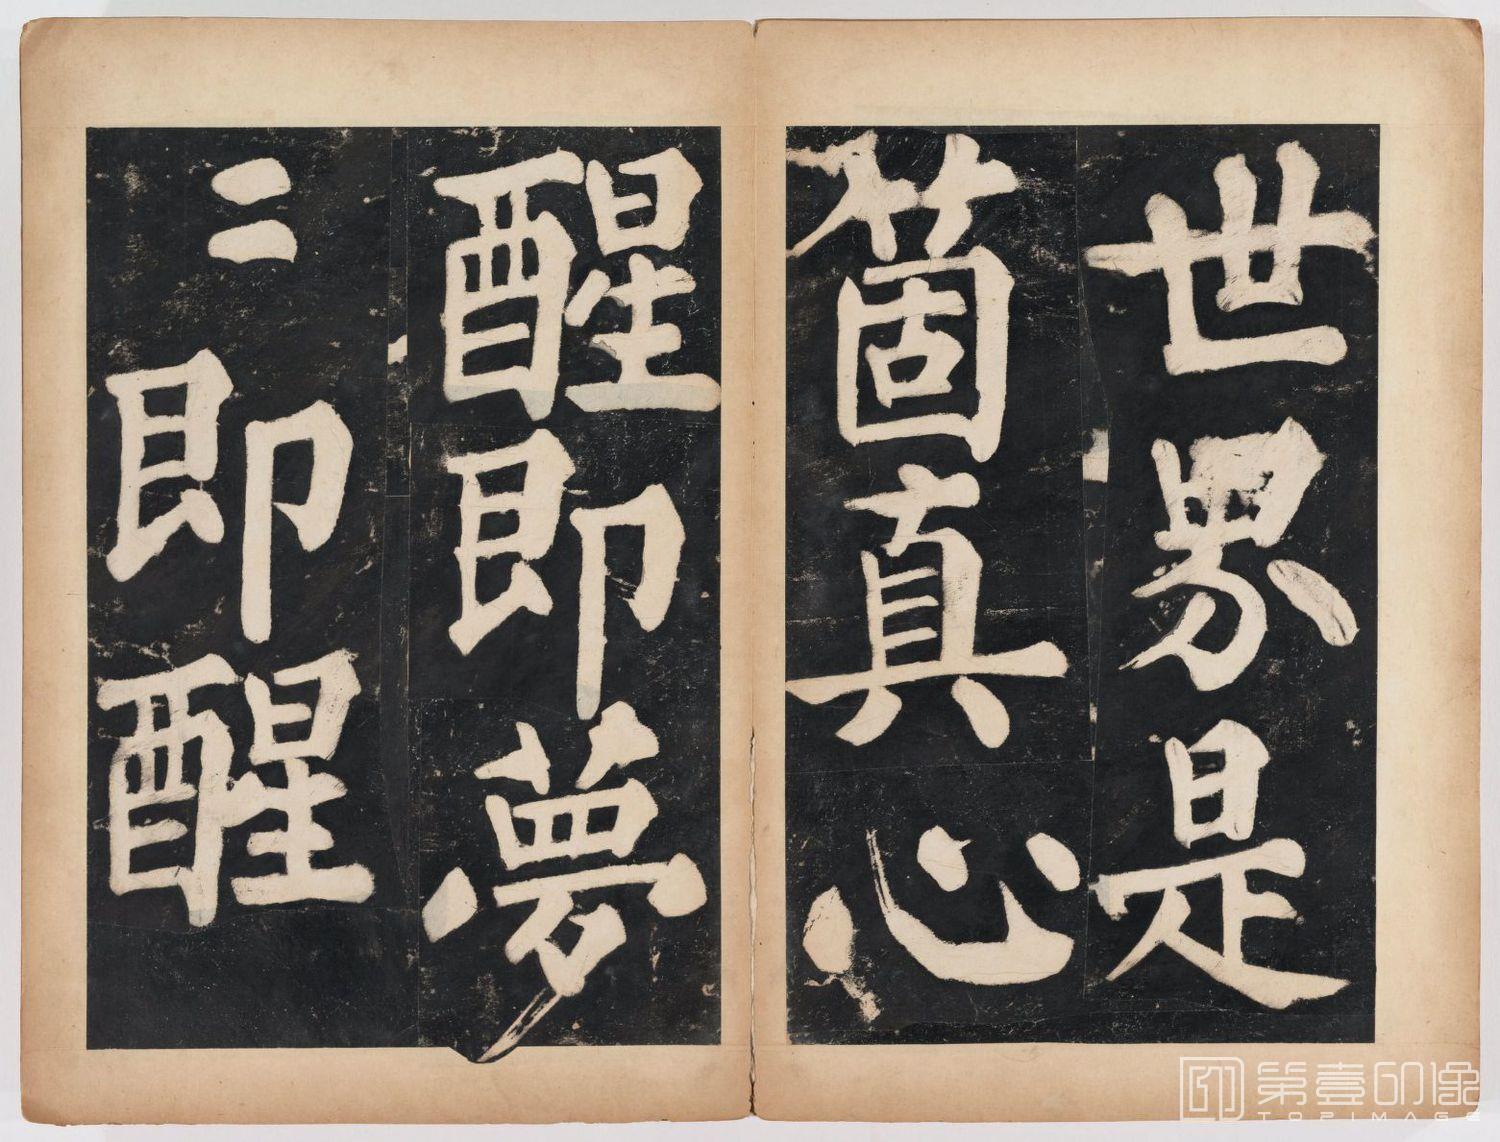 世界是
箇真心
醒即夢
〻即醒
第壹印像
TOPIMAGE